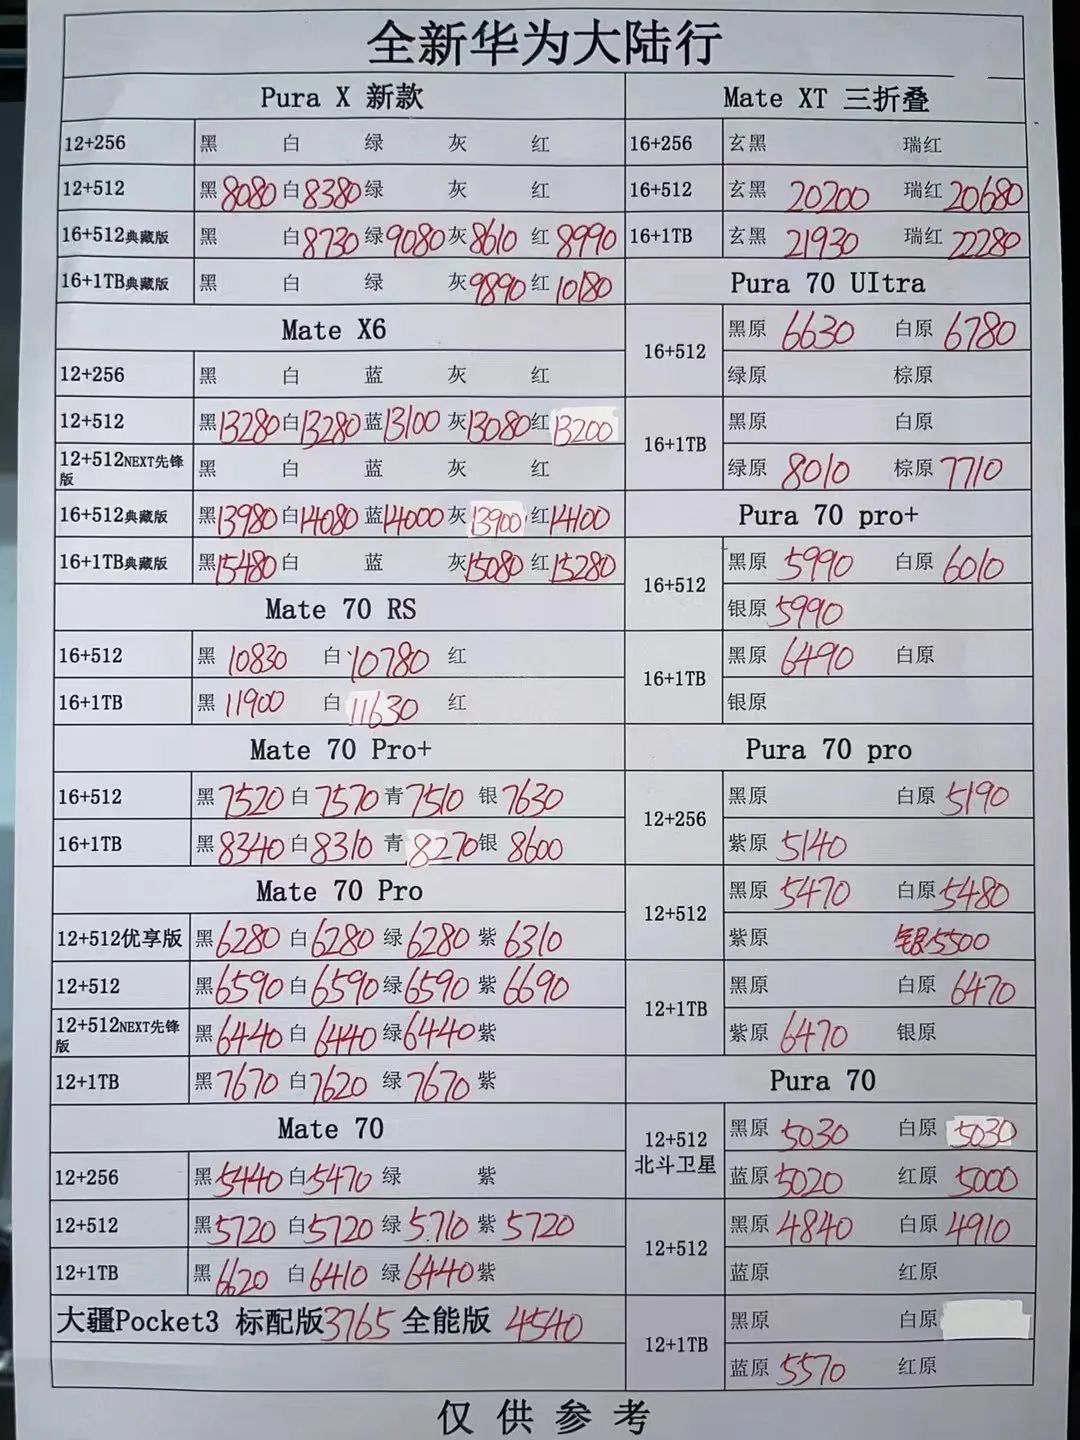 全新华为大陆行
Pura X 新款
12+256 黑 白 绿 灰 红
12+512 黑8080 白8380 绿 灰 红
16+512典藏版 黑 白8730 绿9080 灰8610 红8990
16+1TB典藏版 黑 白 绿 灰9890 红10180
Mate X6
12+256 黑 白 蓝 灰 红
12+512 黑13280 白13280 蓝13100 灰13080 红13200
12+512NEXT先锋版 黑 白 蓝 灰 红
16+512典藏版 黑13980 白14080 蓝14000 灰13900 红14100
16+1TB典藏版 黑15480 白 蓝 灰15080 红15280
Mate 70 RS
16+512 黑 10830 白10780 红
16+1TB 黑 11900 白 11630 红
Mate 70 Pro+
16+512 黑7520 白7570 青7510 银7630
16+1TB 黑8340 白8310 青8270 银8600
Mate 70 Pro
12+512优享版 黑6280 白6280 绿6280 紫6310
12+512 黑6590 白6590 绿6590 紫6690
12+512NEXT先锋版 黑6440 白6440 绿6440 紫
12+1TB 黑7670 白7620 绿7670 紫
Mate 70
12+256 黑5440 白5470 绿 紫
12+512 黑5720 白5720 绿5710 紫5720
12+1TB 黑6620 白6410 绿6440 紫
大疆Pocket3 标配版3765 全能版 4540
Mate XT 三折叠
16+256 玄黑 瑞红
16+512 玄黑 20200 瑞红20680
16+1TB 玄黑 21930 瑞红22280
Pura 70 UItra
16+512 黑原 6630 白原 6780
绿原 棕原
16+1TB 黑原 白原
绿原 8010 棕原7710
Pura 70 pro+
16+512 黑原 5990 白原 6010
银原5990
16+1TB 黑原 6490 白原
银原
Pura 70 pro
12+256 黑原 白原 5190
紫原 5140
12+512 黑原 5470 白原5480
紫原 银5500
12+1TB 黑原 白原 6470
紫原 6470 银原
Pura 70
12+512 北斗卫星 黑原 5030 白原 5030
蓝原5020 红原 5000
12+512 黑原 4840 白原4910
蓝原 红原
12+1TB 黑原 白原
蓝原 5570 红原
仅供参考